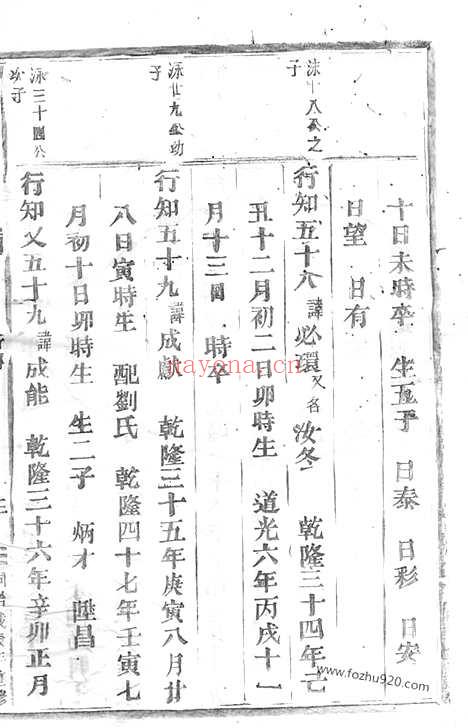 十日未時卒 生五子 日泰 日彩 日安
日望 日有
涑十八公之
子
行知五十八 諱必環又名汝冬 乾隆三十四年己
丑十二月初二日卯時生 道光六年丙戌十一
月十三日 時卒
涑廿九公幼
子
行知五十九 諱成猷 乾隆三十五年庚寅八月廿
八日寅時生 配劉氏 乾隆四十七年壬寅七
月初十日卯時生 生二子 炳才 陞昌
涑三十四公
次子
行知又五十九 諱成能 乾隆三十六年辛卯正月
nayona.cn
www.fozhu920.com